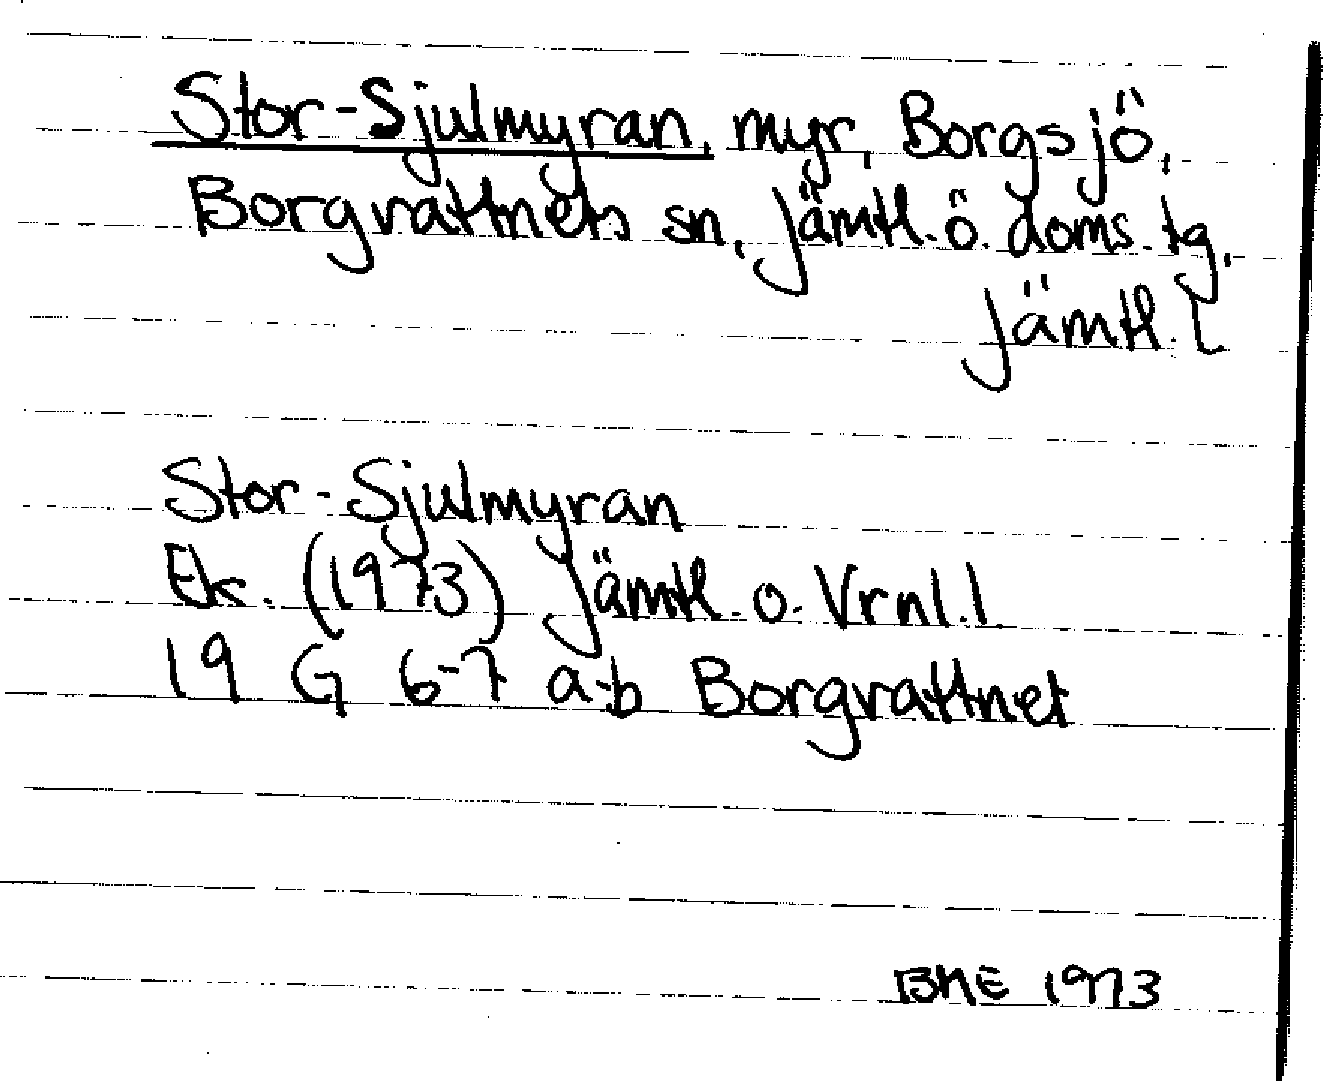 Stor-Sjulmyran, myr, Borgsjö,
Borgvattnets sn, Jämtl. ö. doms. tg,
Jämtl. L
Stor-Sjulmyran
Ek. (1973) Jämtl. o. Vrnl. l.
19 G 6-7 a-b Borgvattnet
BHE 1973